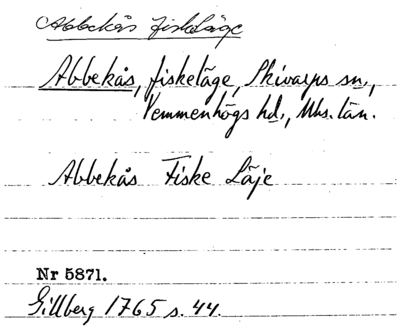 Abbekås fiskeläge
Abbekås, fiskeläge, Skivarps sn.,
Vemmenhögs hd., Mhs. län.
Abbekås Fiske Läje
Nr 5871.
Gillberg 1765 s. 44.